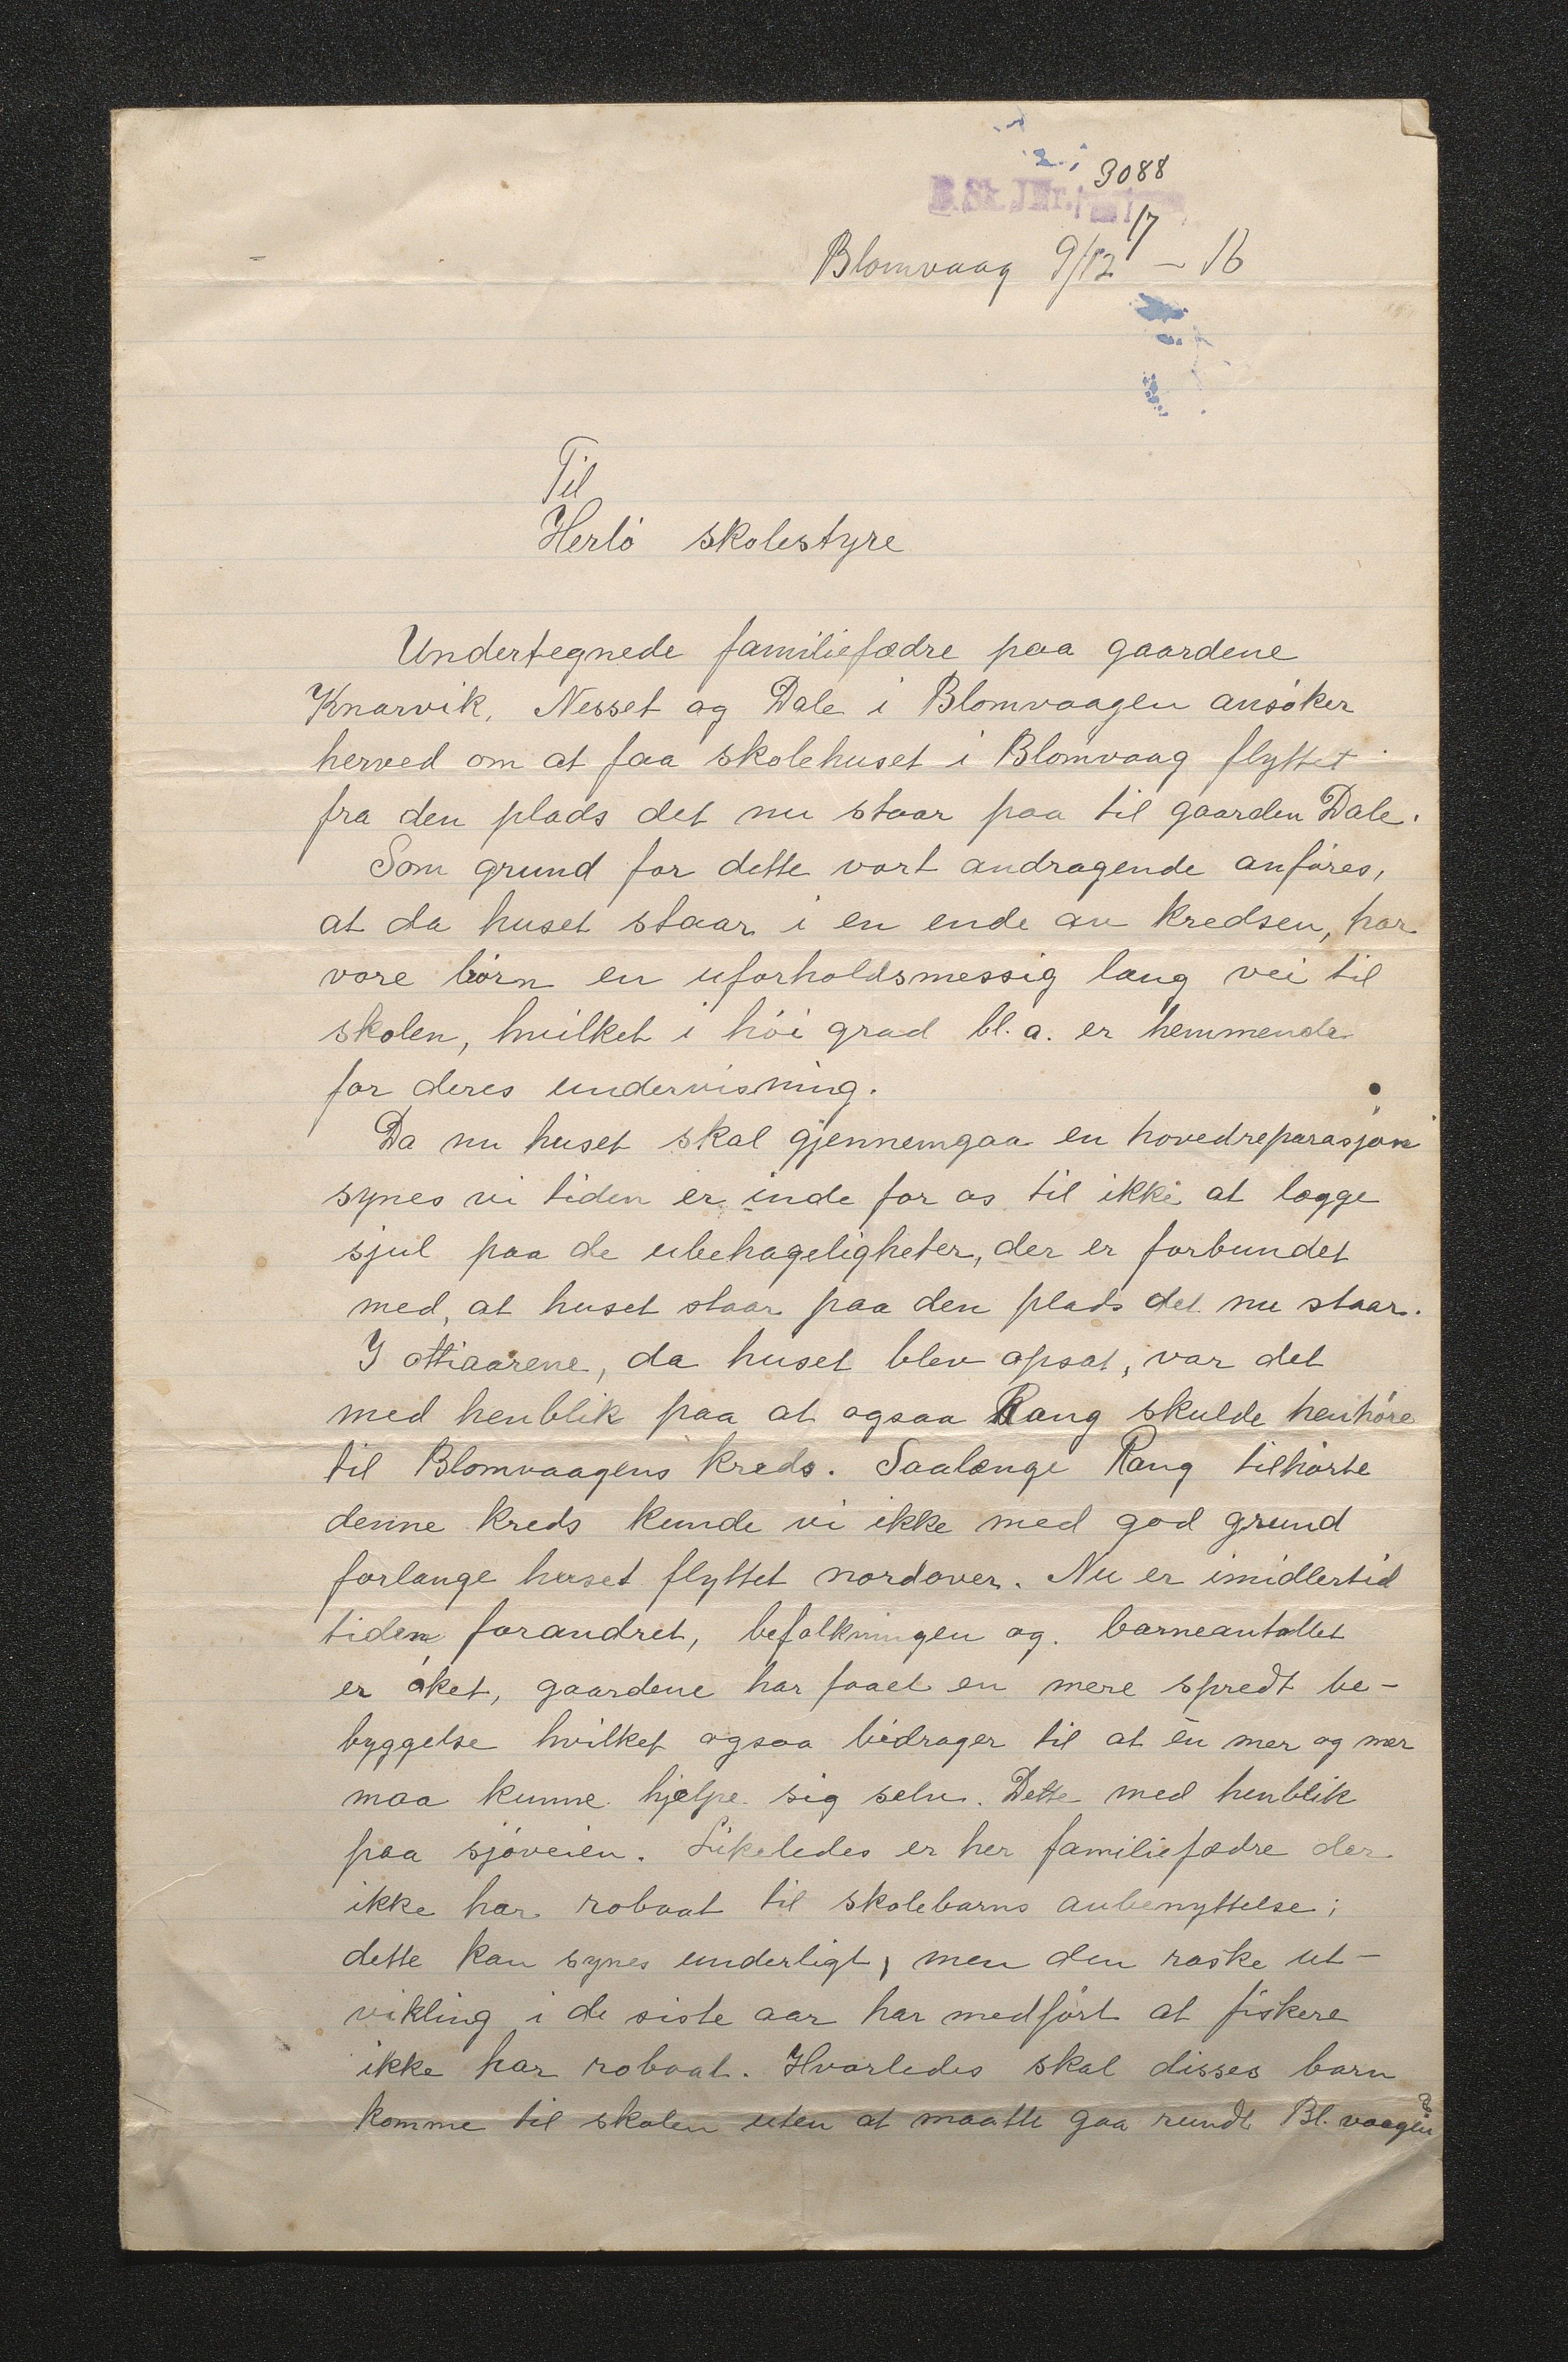 3088
B.St. JNr.
17
Blomvaag 9/12 – 16
Til
Herlö skolestyre
Undertegnede familiefædre paa gaardene
Knarvik, Nesset og Dale i Blomvaagen ansöker
herved om at faa skolehuset i Blomvaag flyttet
fra den plads det nu staar paa til gaarden Dale.
Som grund for dette vort andragende anföres,
at da huset staar i en ende av kredsen, har
vore börn en uforholdsmessig lang vei til
skolen, hvilket i höi grad bl. a. er hemmende
for deres undervisning.
Da nu huset skal gjennemgaa en hovedreparasjon
synes vi tiden er inde for os til ikke at lægge
sjul paa de ubehageligheter, der er forbundet
med, at huset staar paa den plads det nu staar.
I ottiaarene, da huset blev opsat, var det
med henblik paa at ogsaa Rang skulde henhöre
til Blomvaagens kreds. Saalænge Rang tilhörte
denne kreds kunde vi ikke med god grund
forlange huset flyttet nordover. Nu er imidlertid
tiden forandret, befolkningen og barneantallet
er öket, gaardene har faaet en mere spredt be-
byggelse hvilket ogsaa bidrager til at én mer og mer
maa kunne hjelpe sig selv. Dette med henblik
paa sjöveien. Likeledes er her familiefædre der
ikke har robaat til skolebarns anbenyttelse;
dette kan synes underligt, men den raske ut-
vikling i de siste aar har medfört at fiskere
ikke har robaat. Hvorledes skal disses barn
komme til skolen uten at maatte gaa rundt Bl. vaagen?